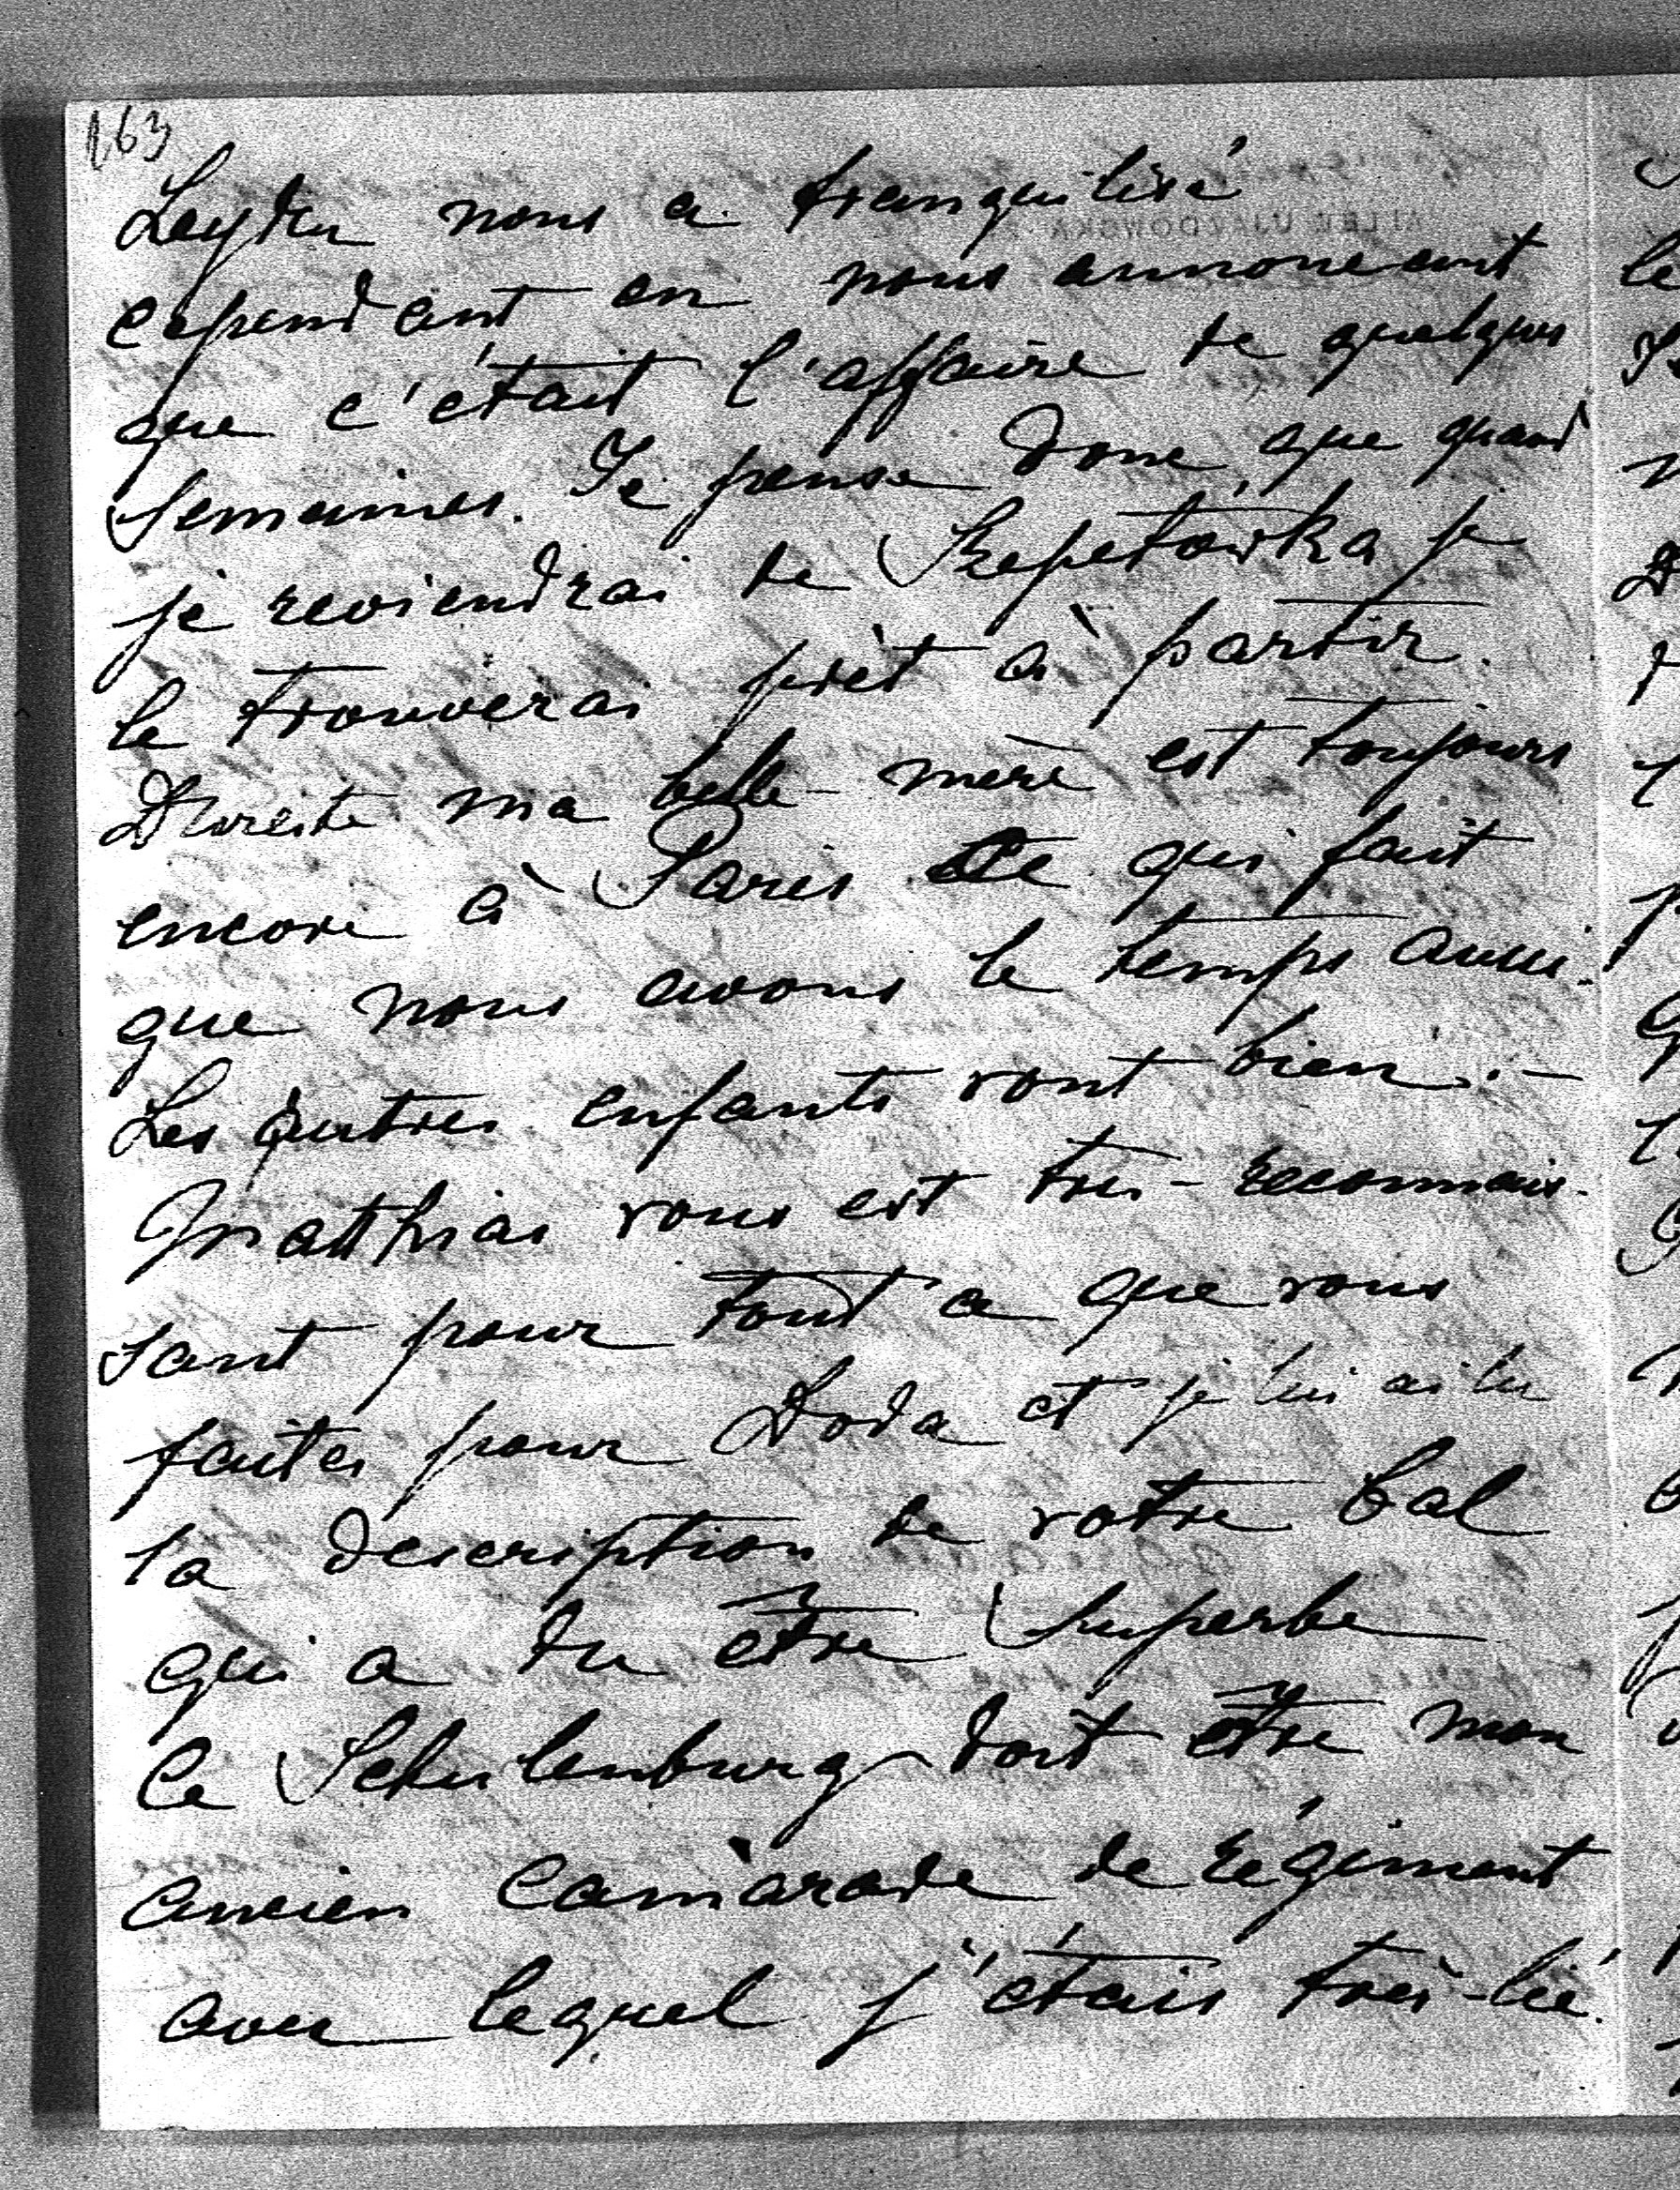 163
Leyden nous a tranquilisé
cependant en nous annoncant
que c'était l'affaire de quelques
semaines. Je pense donc que quand
je reviendrai de Szepetówka je
le trouverai prèt à partir.
Dureste ma belle-mère est toujours
encore à Paris ce qui fait
que nous avons le temps aussi.
Les autres enfants vont bien. –
Matthias vous est très-reconnais-
sant pour tout ce que vous
faites pour Doda et je lui ai lu
la description de votre bal
qui a du être superbe
Ce Schulenburg doit être mon
ancien camarade de régiment
avec lequel j'étais très-lié.